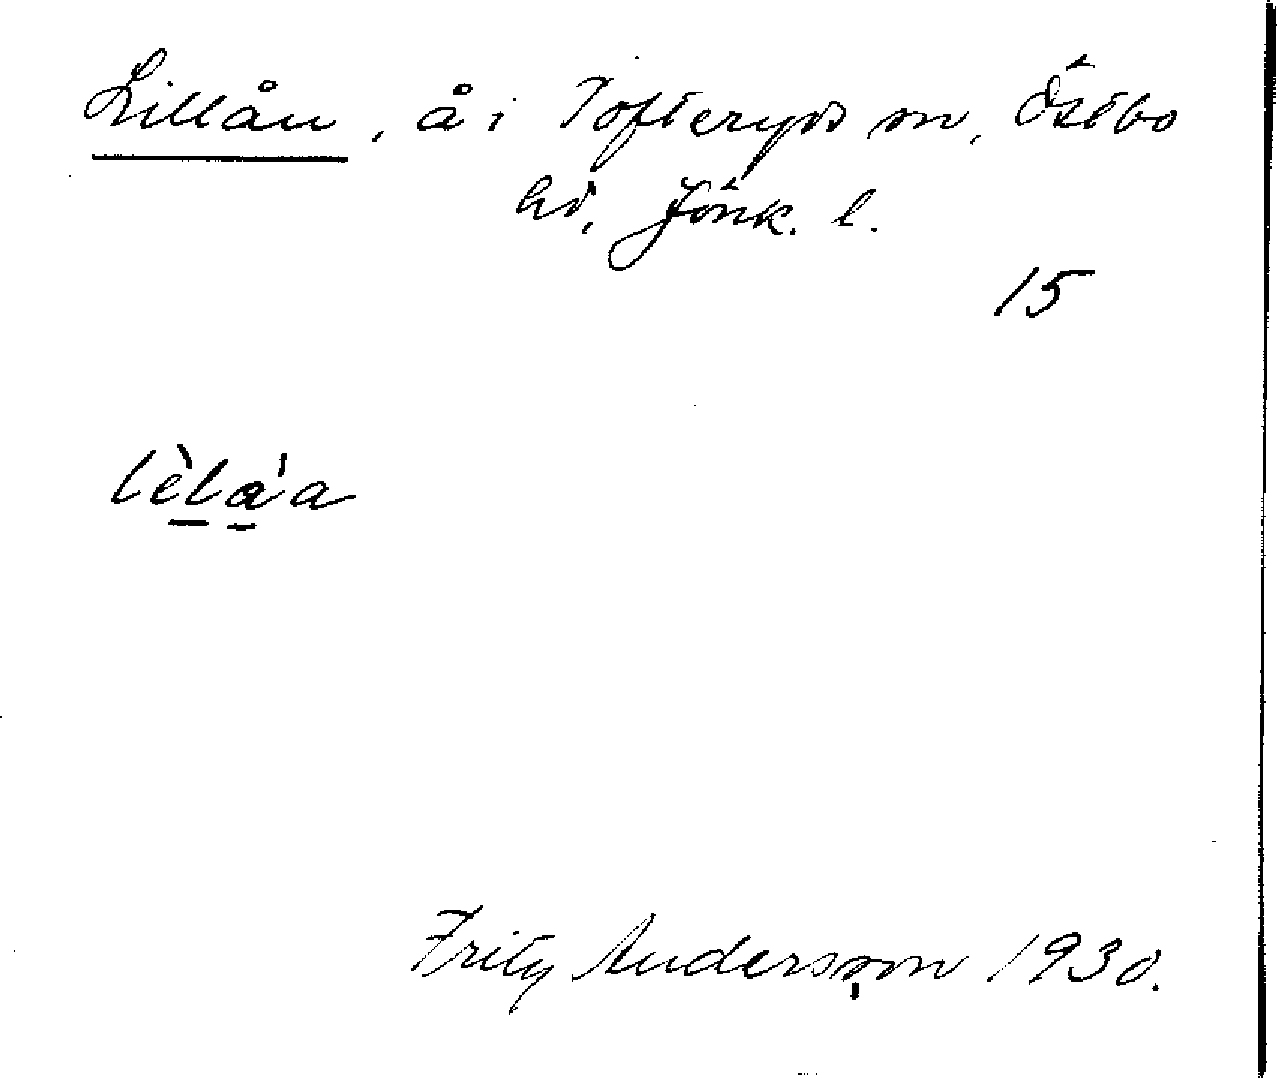 Lillån, å i Tofteryds sn, Östbo
hd, Jönk. l.
15
lèla'a
Fritz Andersson 1930.